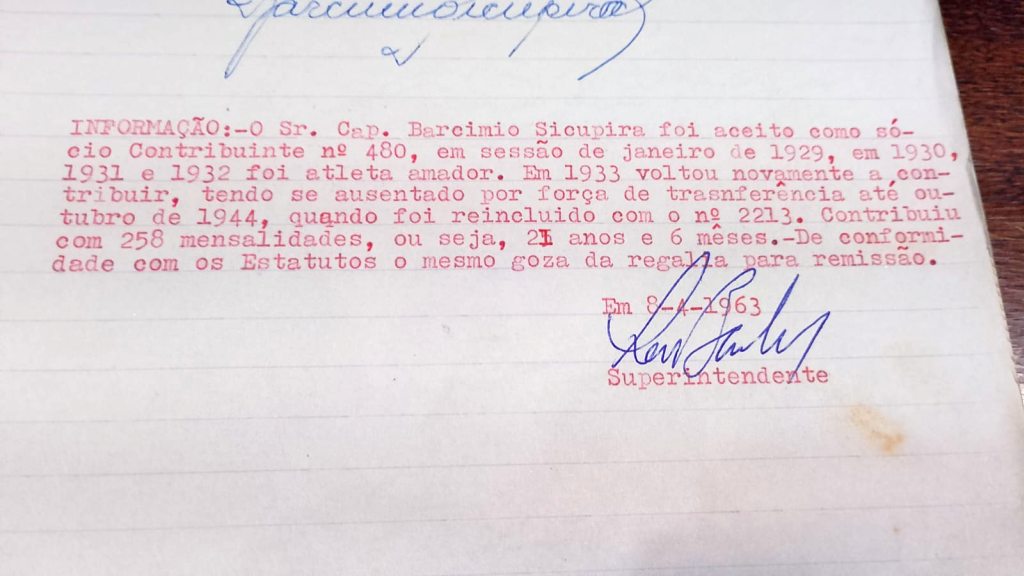 Barcimio Sicupira
INFORMAÇÃO:-O Sr. Cap. Barcimio Sicupira foi aceito como só-
cio Contribuinte nº 480, em sessão de janeiro de 1929, em 1930,
1931 e 1932 foi atleta amador. Em 1933 voltou novamente a con-
tribuir, tendo se ausentado por fôrça de trasnferência até ou-
tubro de 1944, quando foi reincluido com o nº 2213. Contribuiu
com 258 mensalidades, ou seja, 21 anos e 6 mêses.-De conformi-
dade com os Estatutos o mesmo goza da regalia para remissão.
Em 8-4-1963
Superintendente